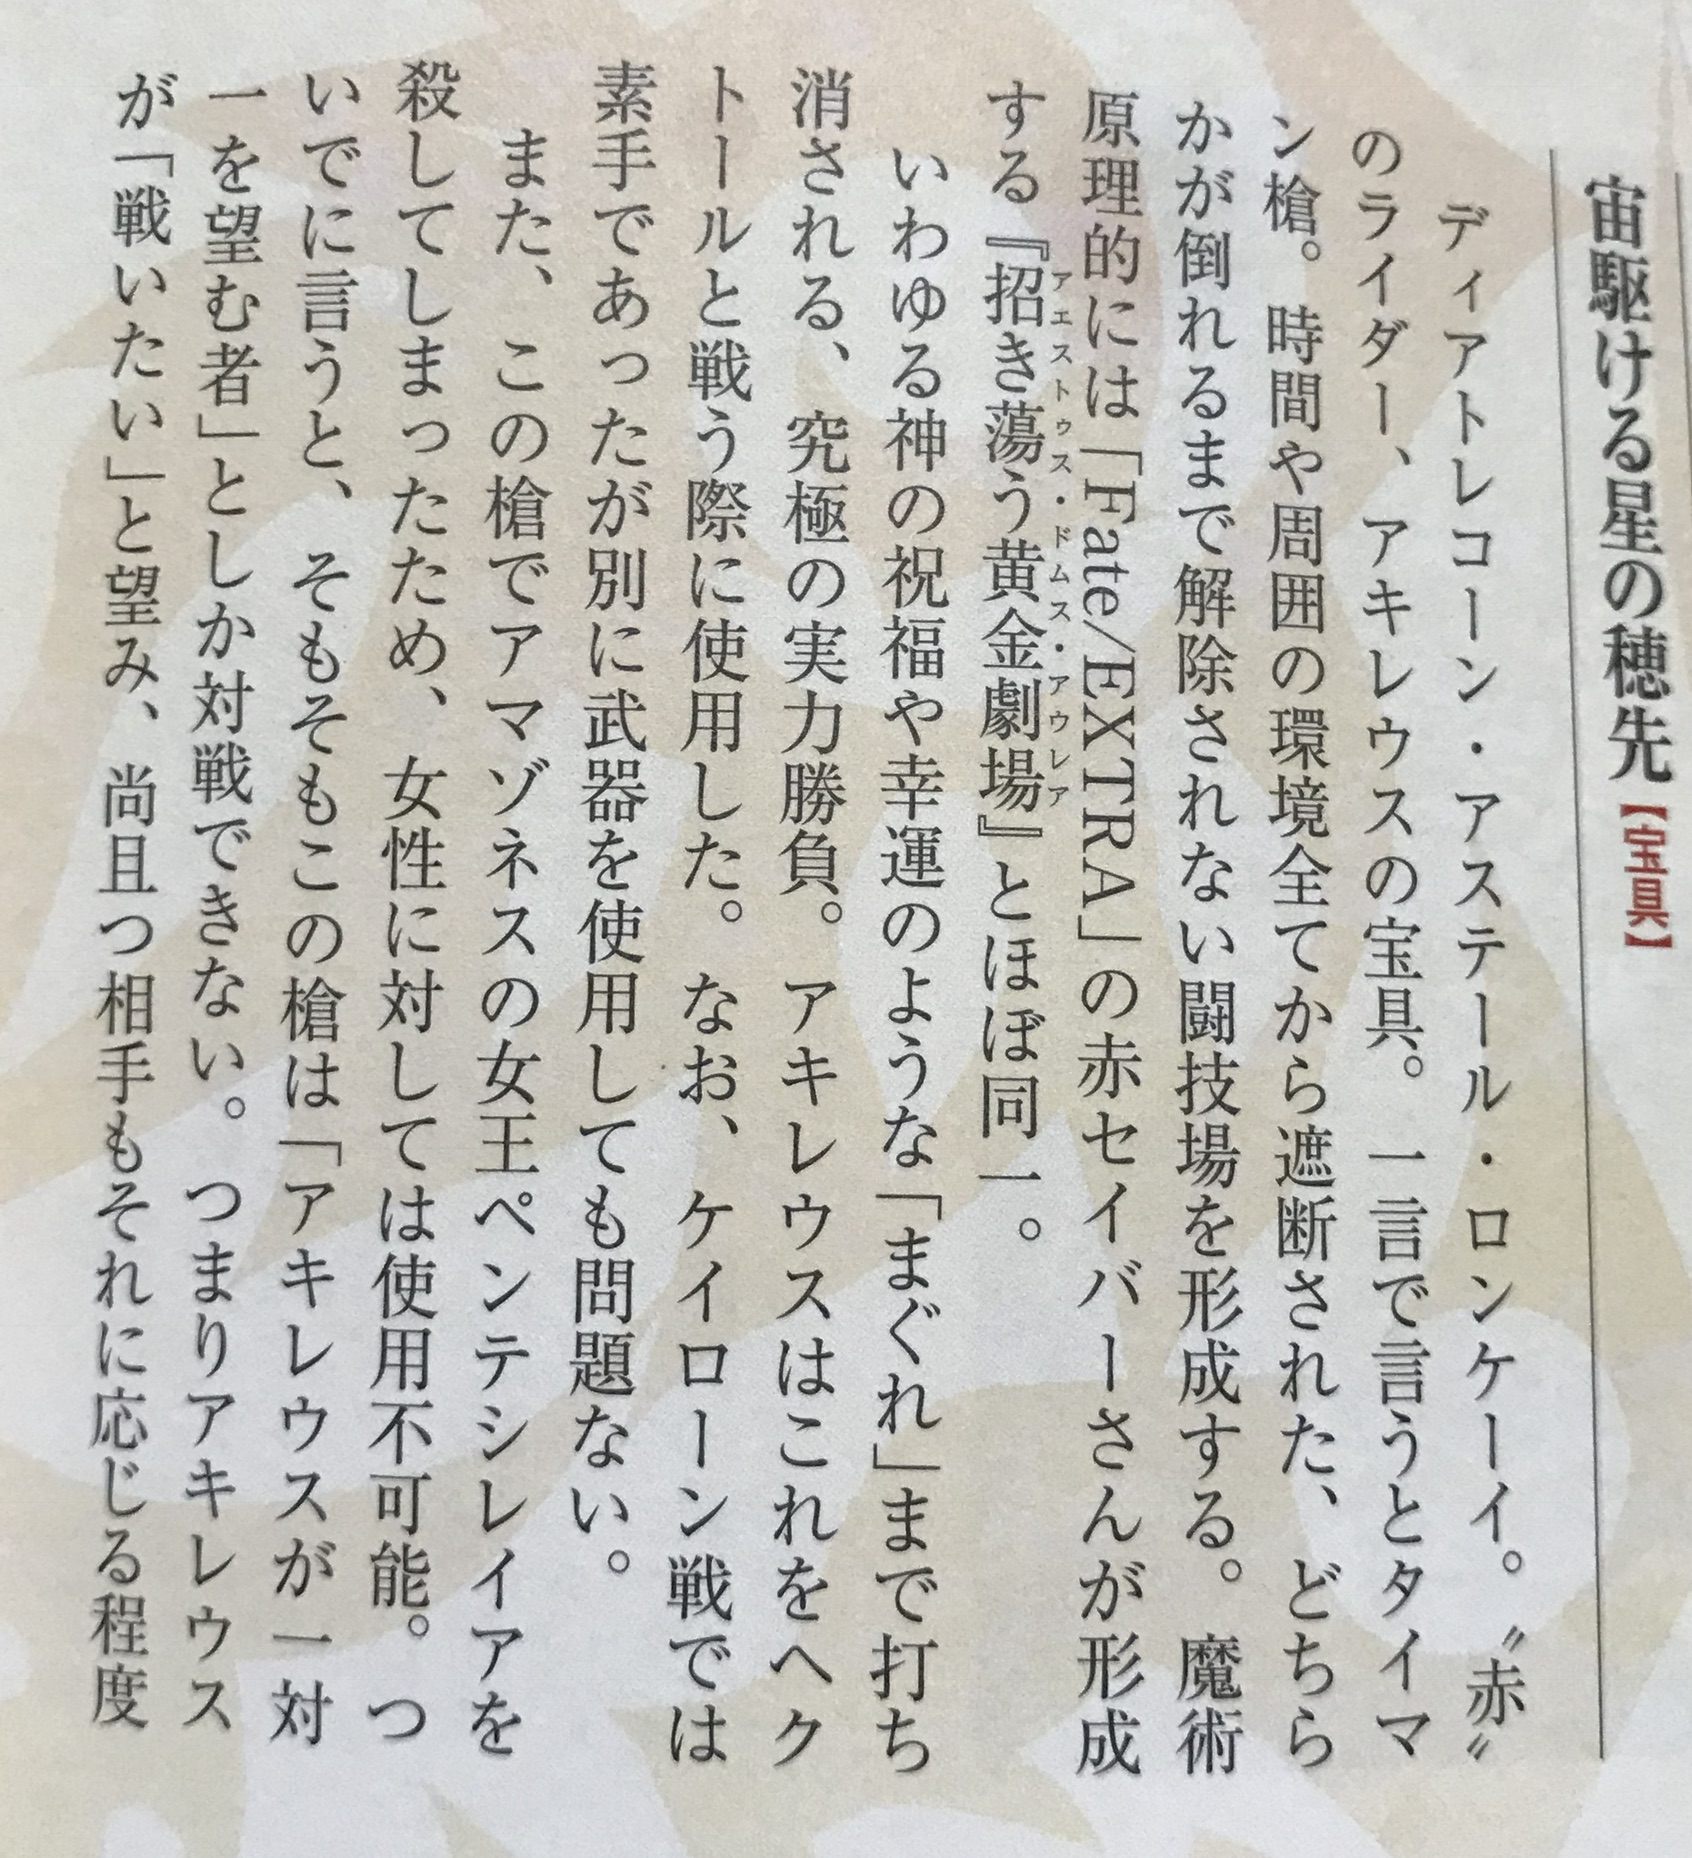 宙駆ける星の穂先【宝具】
ディアトレコーン・アステール・ロンケーイ。〝赤〟
のライダー、アキレウスの宝具。一言で言うとタイマ
ン槍。時間や周囲の環境全てから遮断された、どちら
かが倒れるまで解除されない闘技場を形成する。魔術
原理的には「Fate/EXTRA」の赤セイバーさんが形成
する『招き蕩う黄金劇場』とほぼ同一。
アエストゥス・ドムス・アウレア
いわゆる神の祝福や幸運のような「まぐれ」まで打ち
消される、究極の実力勝負。アキレウスはこれをヘク
トールと戦う際に使用した。なお、ケイローン戦では
素手であったが別に武器を使用しても問題ない。
また、この槍でアマゾネスの女王ペンテシレイアを
殺してしまったため、女性に対しては使用不可能。つ
いでに言うと、そもそもこの槍は「アキレウスが一対
一を望む者」としか対戦できない。つまりアキレウス
が「戦いたい」と望み、尚且つ相手もそれに応じる程度